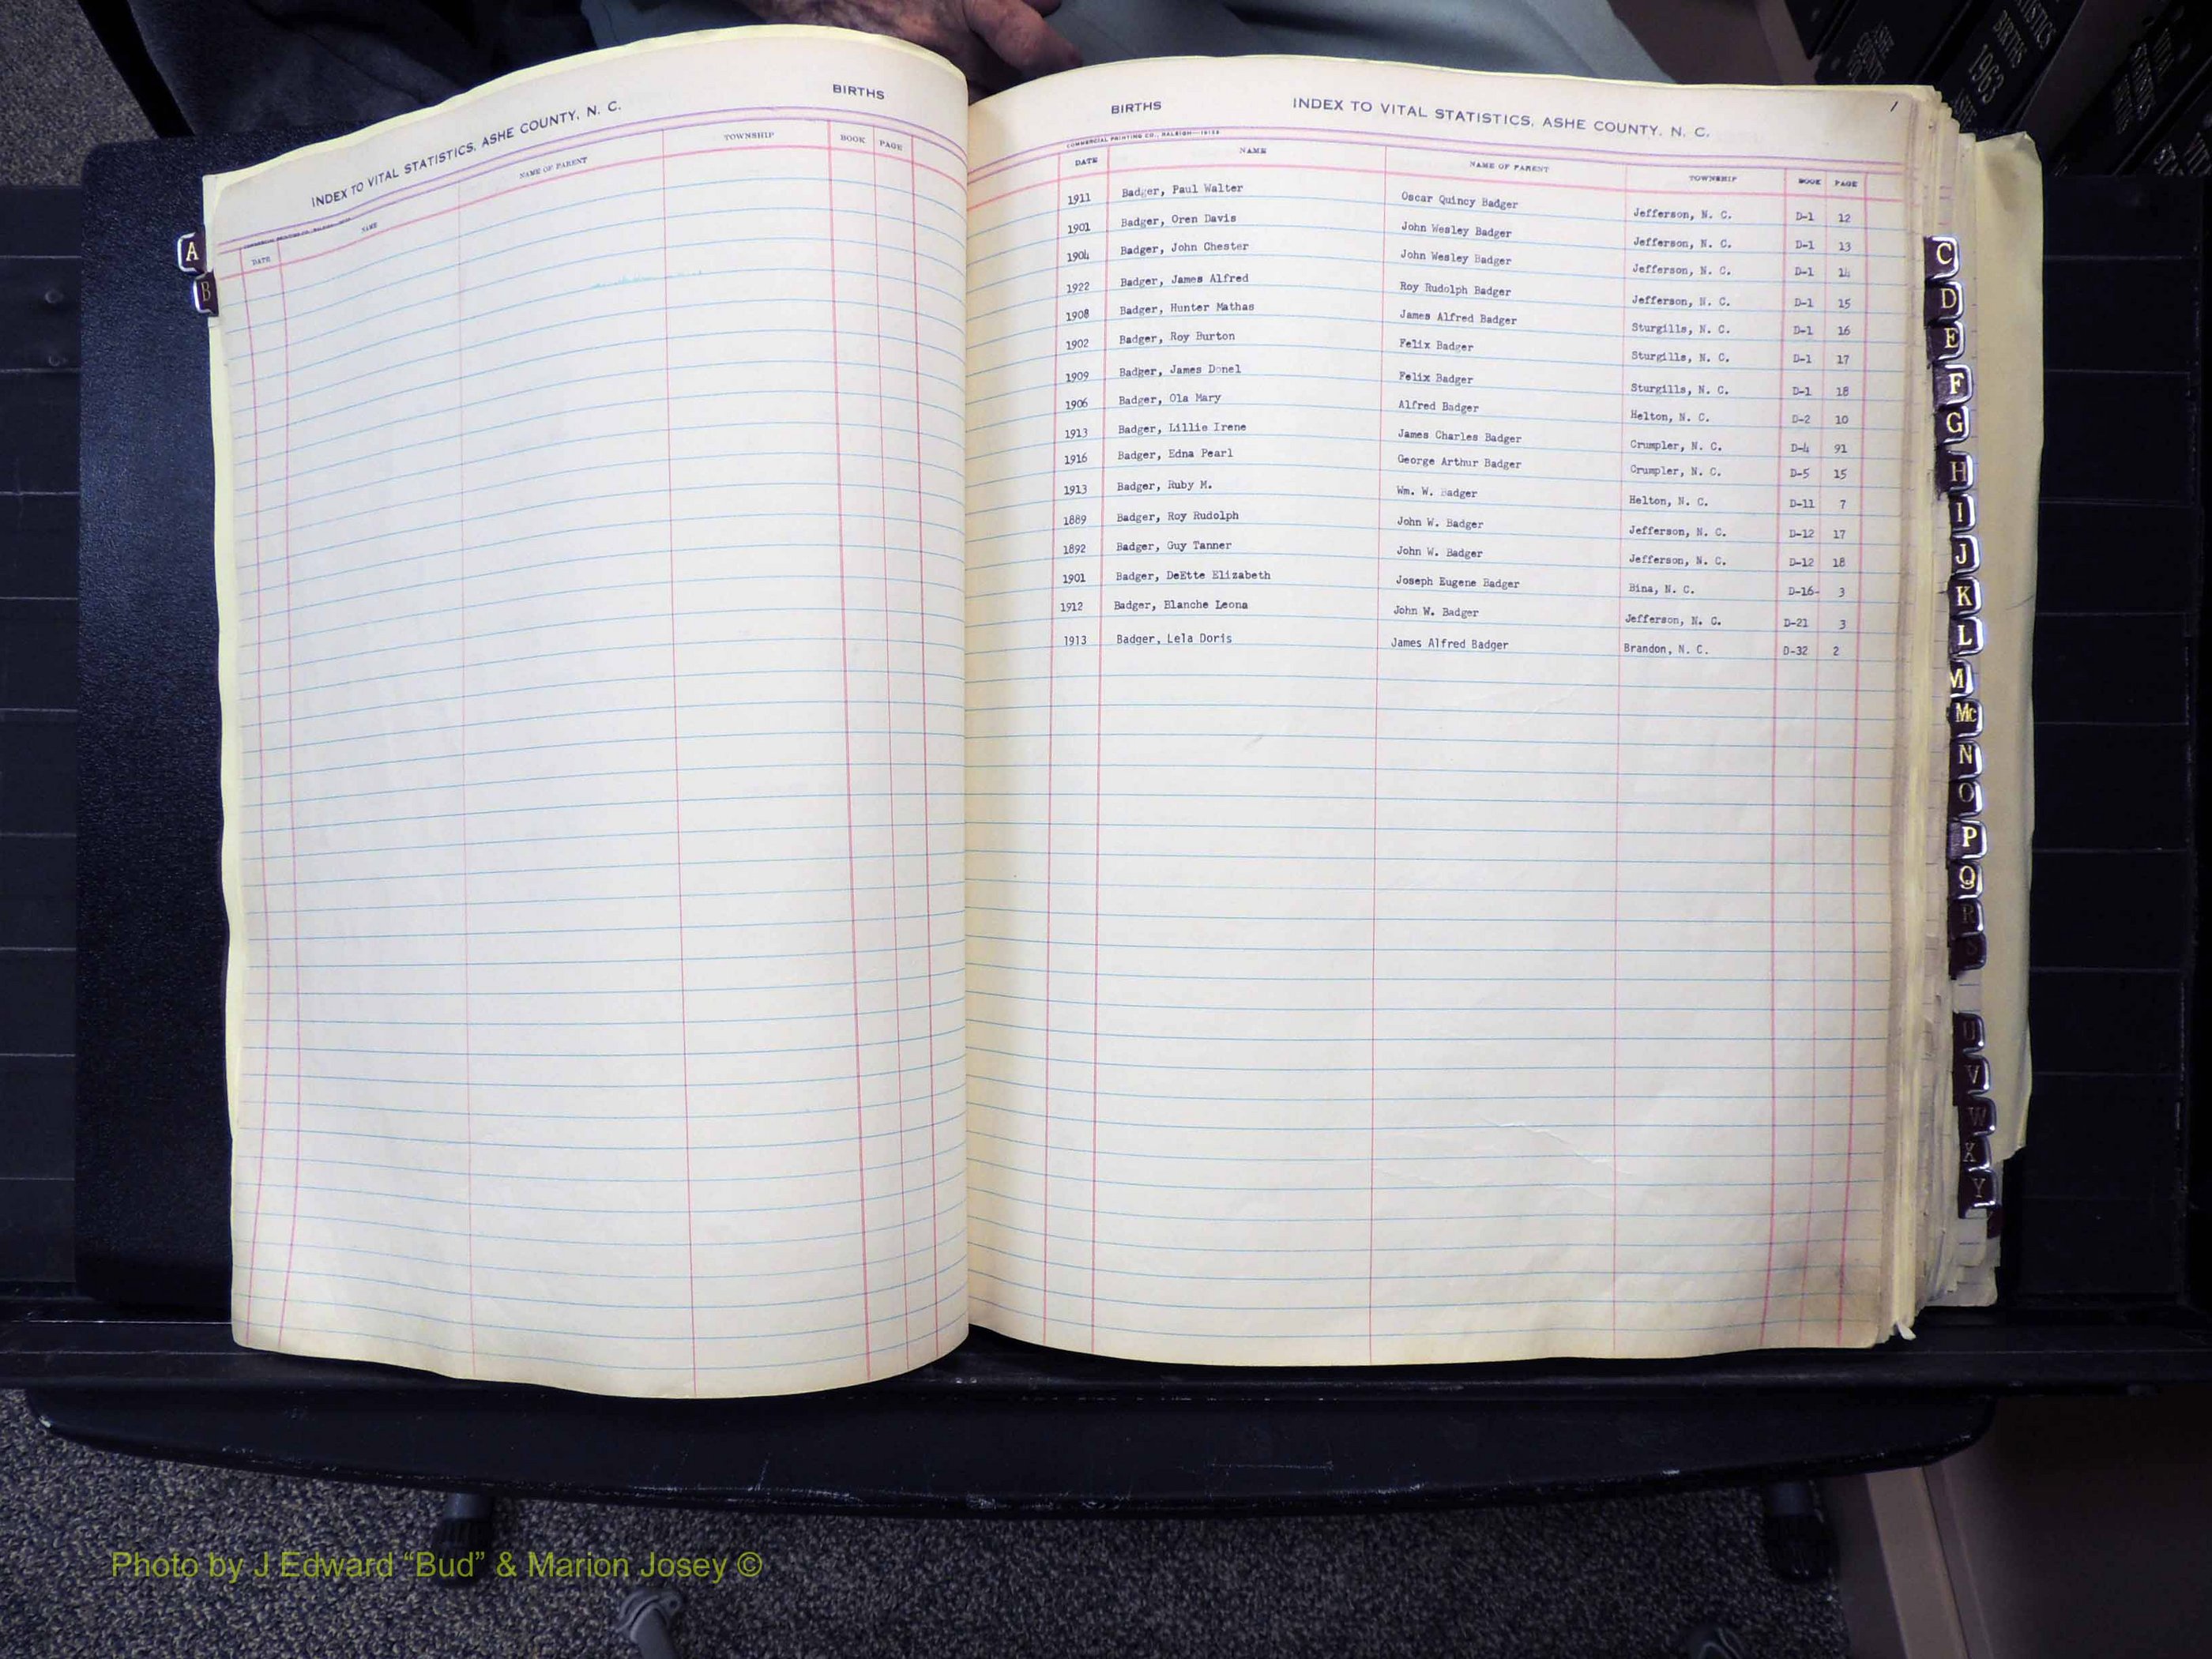 BIRTHS
INDEX TO VITAL STATISTICS, ASHE COUNTY, N. C.
DATE NAME NAME OF PARENT TOWNSHIP BOOK PAGE
A
B
1
BIRTHS INDEX TO VITAL STATISTICS, ASHE COUNTY, N. C.
COMMERCIAL PRINTING CO., RALEIGH
DATE NAME NAME OF PARENT TOWNSHIP BOOK PAGE
1911 Badger, Paul Walter Oscar Quincy Badger Jefferson, N. C. D-1 12
1901 Badger, Oren Davis John Wesley Badger Jefferson, N. C. D-1 13
1904 Badger, John Chester John Wesley Badger Jefferson, N. C. D-1 14
1922 Badger, James Alfred Roy Rudolph Badger Jefferson, N. C. D-1 15
1908 Badger, Hunter Mathas James Alfred Badger Sturgills, N. C. D-1 16
1902 Badger, Roy Burton Felix Badger Sturgills, N. C. D-1 17
1909 Badger, James Donel Felix Badger Sturgills, N. C. D-1 18
1906 Badger, Ola Mary Alfred Badger Helton, N. C. D-2 10
1913 Badger, Lillie Irene James Charles Badger Crumpler, N. C. D-4 91
1916 Badger, Edna Pearl George Arthur Badger Crumpler, N. C. D-5 15
1913 Badger, Ruby M. Wm. W. Badger Helton, N. C. D-11 7
1889 Badger, Roy Rudolph John W. Badger Jefferson, N. C. D-12 17
1892 Badger, Guy Tanner John W. Badger Jefferson, N. C. D-12 18
1901 Badger, DeEtte Elizabeth Joseph Eugene Badger Bina, N. C. D-16- 3
1912 Badger, Blanche Leona John W. Badger Jefferson, N. C. D-21 3
1913 Badger, Lela Doris James Alfred Badger Brandon, N. C. D-32 2
C
D
E
F
G
H
I
J
K
L
M
Mc
N
O
P
Q
R
S
U
V
W
X
Y
BIRTHS
1963
Photo by J Edward “Bud” & Marion Josey ©